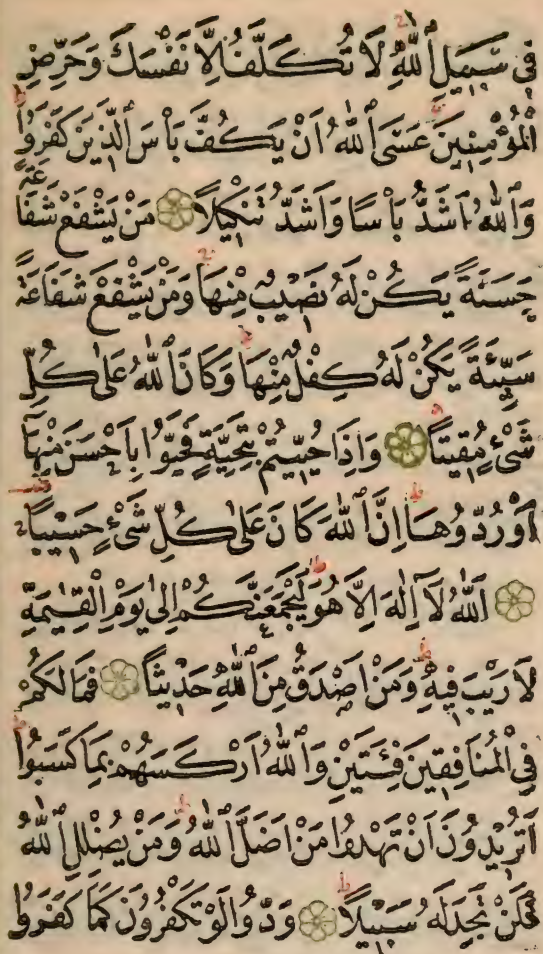 فِى سَبِيلِ ٱللّٰهِ لَا تُكَلَّفُ اِلَّا نَفْسَكَ وَحَرِّضِ
الْمُؤْمِنِينَ عَسَى ٱللّٰهُ اَنْ يَكُفَّ بَأْسَ ٱلَّذِينَ كَفَرُوا
وَٱللّٰهُ اَشَدُّ بَأْسًا وَاَشَدُّ تَنْكِيلًا مَنْ يَشْفَعْ شَفَاعَةً
حَسَنَةً يَكُنْ لَهُ نَصِيبٌ مِنْهَا وَمَنْ يَشْفَعْ شَفَاعَةً
سَيِّئَةً يَكُنْ لَهُ كِفْلٌ مِنْهَا وَكَانَ ٱللّٰهُ عَلٰى كُلِّ
شَىْءٍ مُقِيتًا وَاِذَا حُيِّيتُمْ بِتَحِيَّةٍ فَحَيُّوا بِاَحْسَنَ مِنْهَا
اَوْ رُدُّوهَا اِنَّ ٱللّٰهَ كَانَ عَلٰى كُلِّ شَىْءٍ حَسِيبًا
اَللّٰهُ لَا اِلٰهَ اِلَّا هُوَ لَيَجْمَعَنَّكُمْ اِلٰى يَوْمِ الْقِيٰمَةِ
لَا رَيْبَ فِيهِ وَمَنْ اَصْدَقُ مِنَ ٱللّٰهِ حَدِيثًا فَمَا لَكُمْ
فِى الْمُنَافِقِينَ فِئَتَيْنِ وَٱللّٰهُ اَرْكَسَهُمْ بِمَا كَسَبُوا
اَتُرِيدُونَ اَنْ تَهْدُوا مَنْ اَضَلَّ ٱللّٰهُ وَمَنْ يُضْلِلِ ٱللّٰهُ
فَلَنْ تَجِدَ لَهُ سَبِيلًا وَدُّوا لَوْ تَكْفُرُونَ كَمَا كَفَرُوا